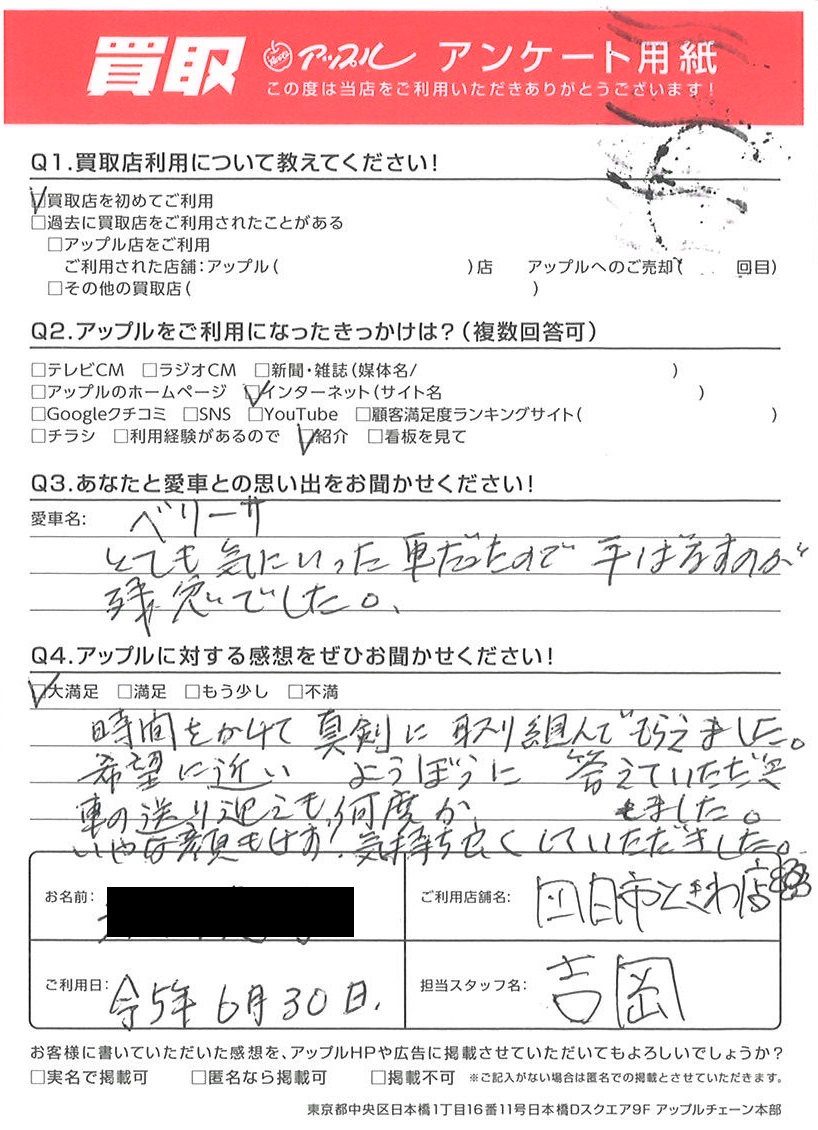 買取 アップル アンケート用紙
この度は当店をご利用いただきありがとうございます!
Q1.買取店利用について教えてください!
買取店を初めてご利用
□過去に買取店をご利用されたことがある
□アップル店をご利用
ご利用された店舗:アップル( )店 アップルへのご売却( 回目)
□その他の買取店( )
Q2.アップルをご利用になったきっかけは?(複数回答可)
□テレビCM □ラジオCM □新聞・雑誌(媒体名/ )
□アップルのホームページ ☑インターネット(サイト名 )
□Googleクチコミ □SNS □YouTube □顧客満足度ランキングサイト( )
□チラシ □利用経験があるので ☑紹介 □看板を見て
Q3.あなたと愛車との思い出をお聞かせください!
愛車名: ベリーサ
とても気にいった車だったので手ばなすのが
残念でした。
Q4.アップルに対する感想をぜひお聞かせください!
☑大満足 □満足 □もう少し □不満
時間をかけて真剣に取り組んでもらえました。
希望に近い ようぼうに 答えていただき
車の送り迎えも何度か ました。
いやな顔もせず!気持ち良くしていただきました。
お名前: ご利用店舗名: 四日市ときわ店
ご利用日: 令5年6月30日. 担当スタッフ名: 吉岡
お客様に書いていただいた感想を、アップルHPや広告に掲載させていただいてもよろしいでしょうか?
□実名で掲載可 □匿名なら掲載可 □掲載不可 ※ご記入がない場合は匿名での掲載とさせていただきます。
東京都中央区日本橋1丁目16番11号日本橋Dスクエア9F アップルチェーン本部